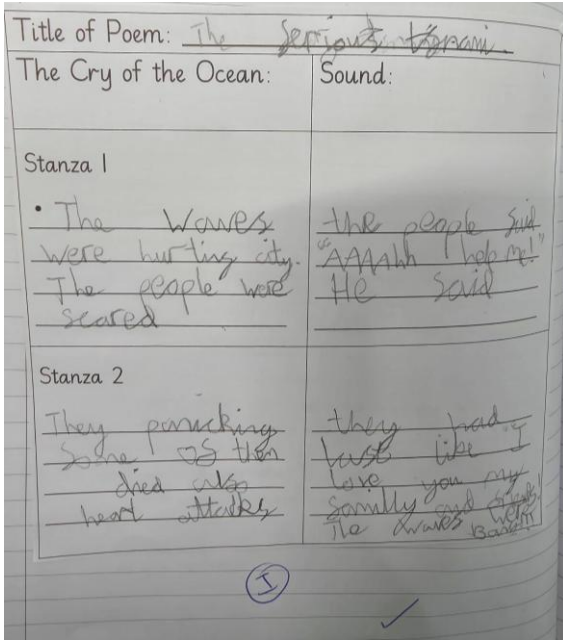 Title of Poem: The Serious
The Cry of the Ocean:
Sound:
Stanza 1
• The waves
were hurting city.
The people were
scared
the people said
"AAAAhh help me!"
He said
Stanza 2
They panicking
Some of them
died also
heart attacks
they had
last like I
Love you my
family and
The waves were